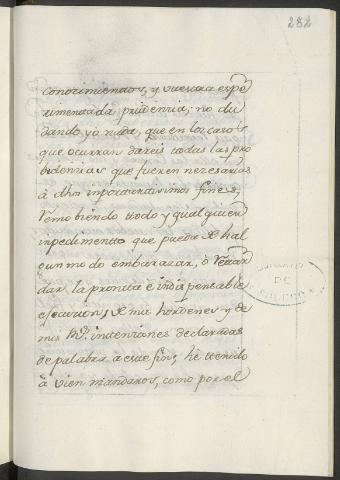 282
Conocimientos, y vuestra expe
rimentada prudencia; no du
dando yo nada, que en los casos
que ocurran dareis todas las pro
bidencias que fueren necesarias
à dhos inportantisimos fines,
Remobiendo todo y qualquier
inpedimento que pueda de hal
gun modo embarazar, ò Retar
dar la pronta è indispensable
ejecucion, de mis hordenes y de
mis Rs. intenciones declaradas
de palabra a este fin; hè tenido
à vien mandaros, como por el
DE